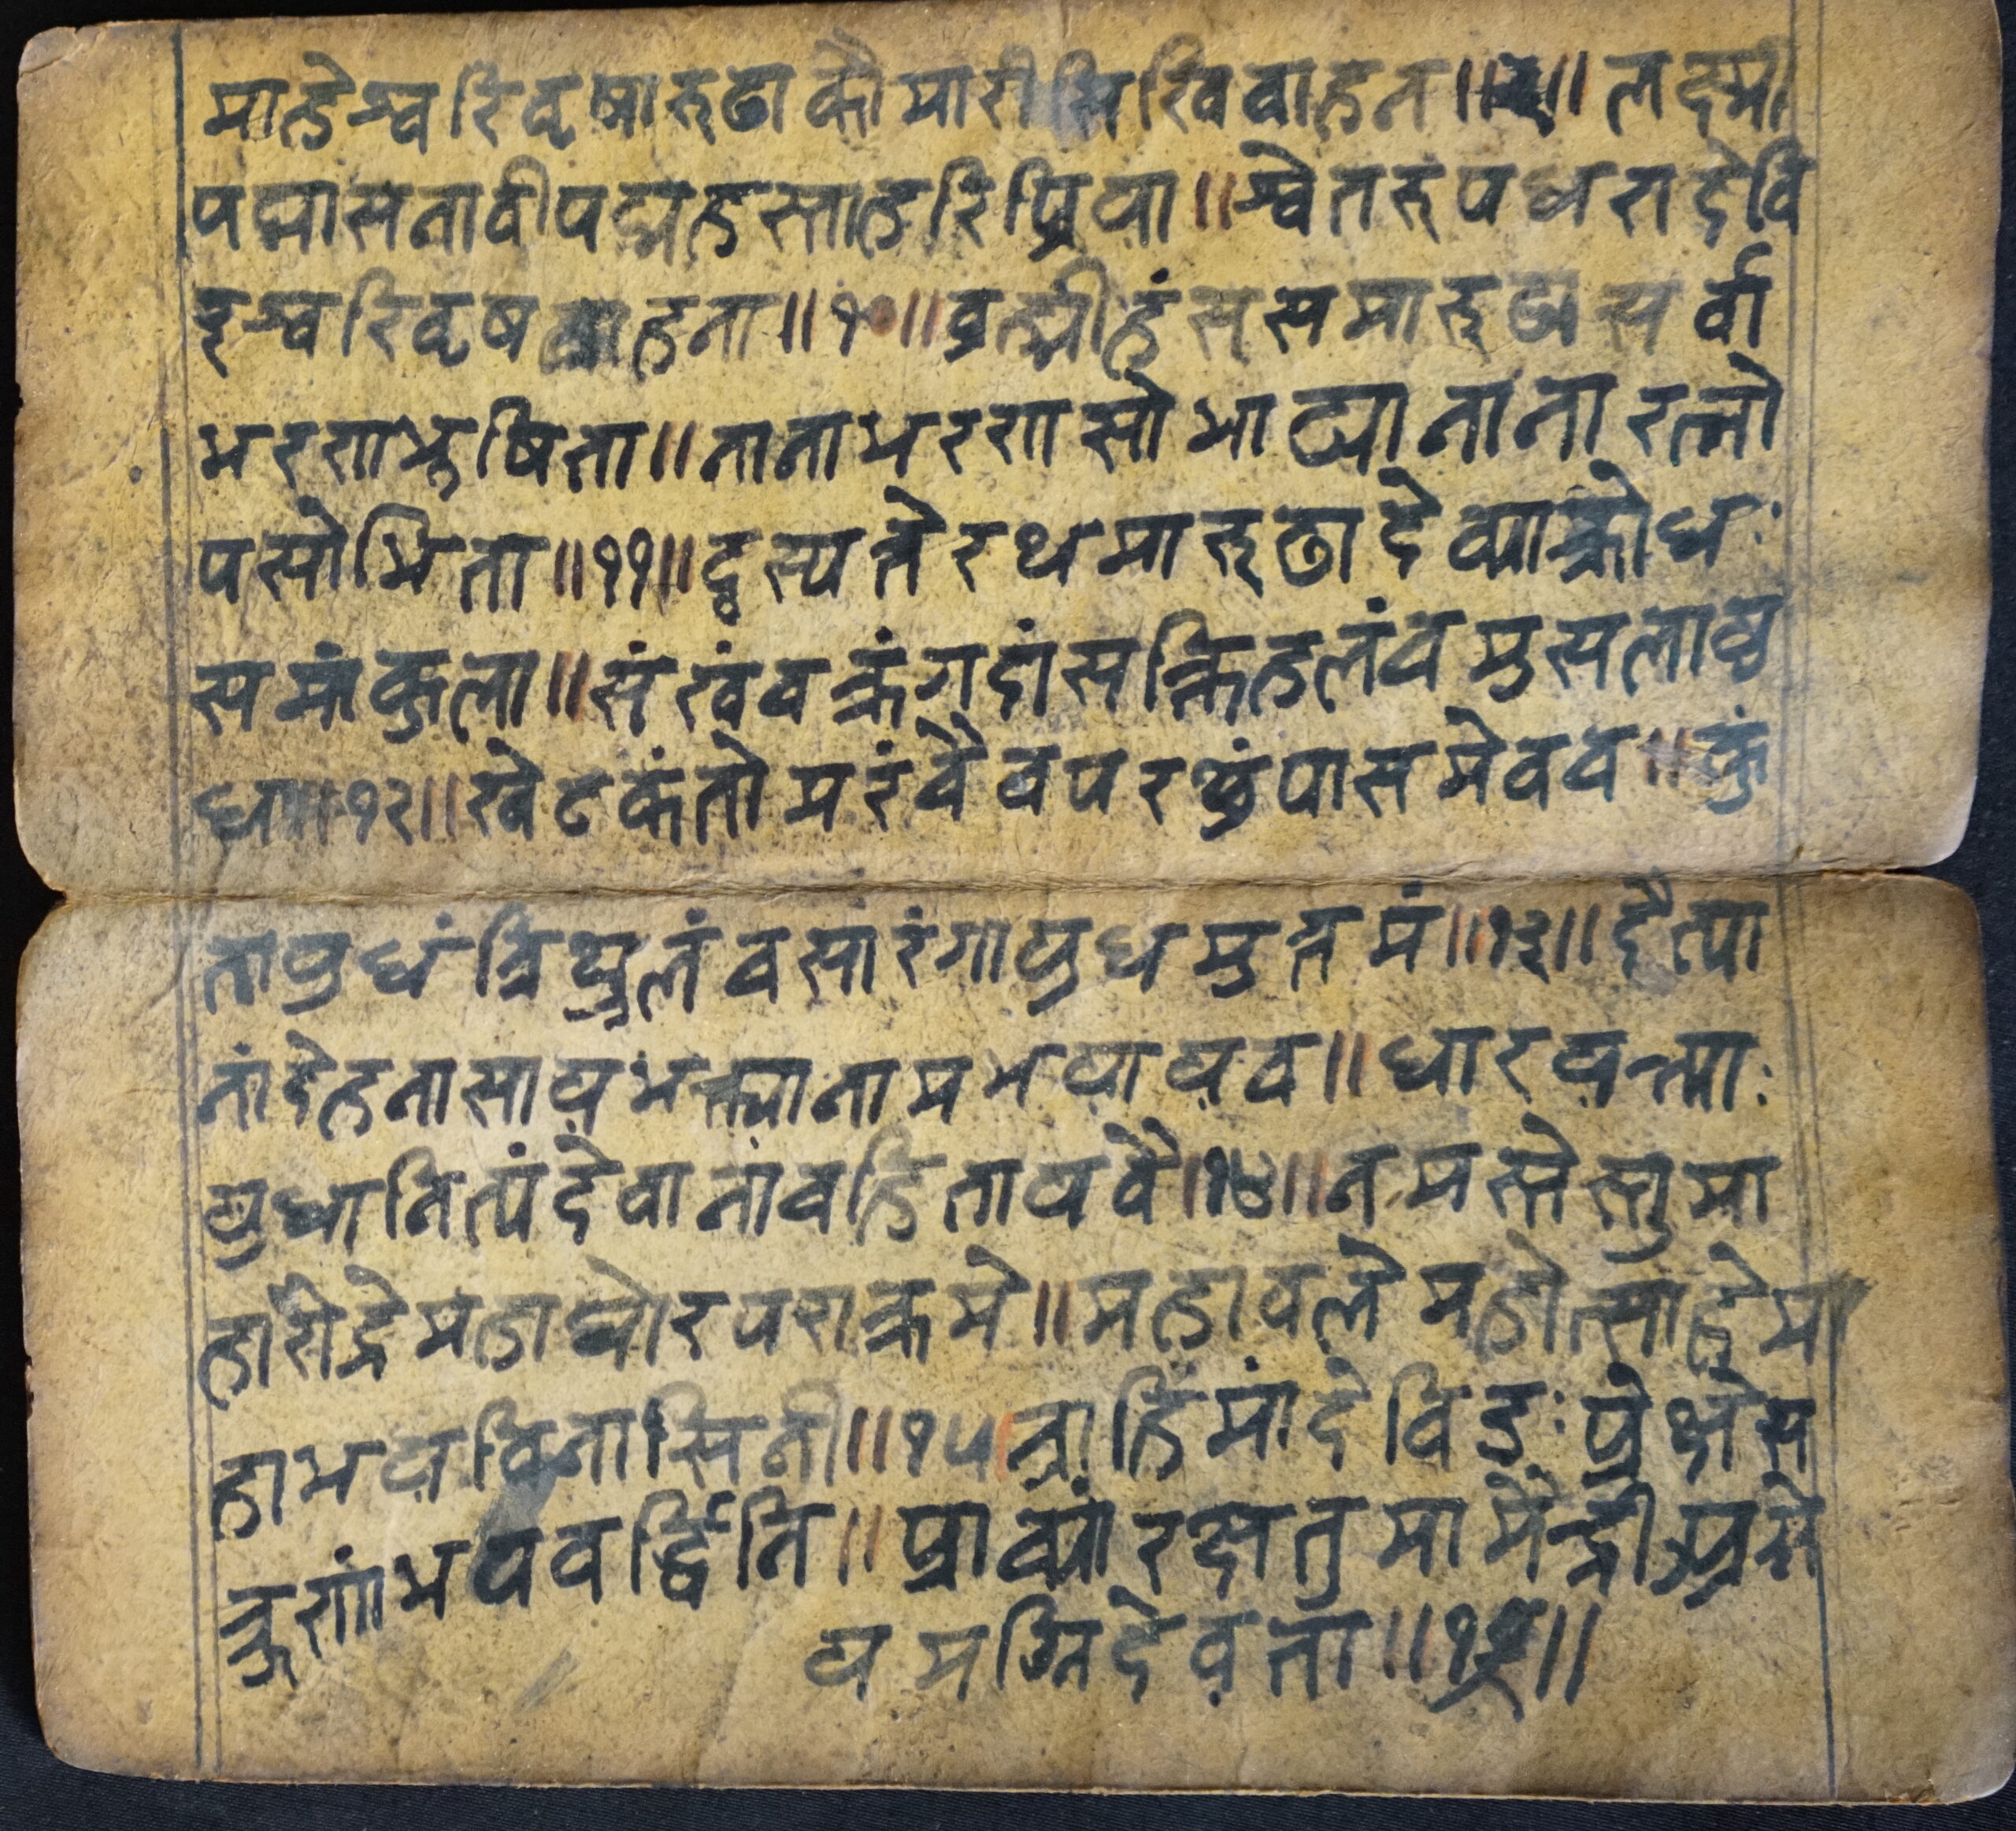 माहेश्वरिवृषारुढाकौमारीसिखिवाहन॥९॥लक्ष्मी
पद्मासनावीपद्महस्ताहरिप्रिया॥श्वेतरुपधरादेवि
इश्वरिवृषवाहना॥१०॥व्रह्मीहंससमारुढासर्वा
भरणभुषिता॥नानाभरणसोभाढ्यानानारत्नो
पसोभिता॥११॥दृस्यन्तेरथमारुढादेव्याक्रोधः
समांकुला॥संखंवक्रंगदांसक्तिहलंवमुसलायु
धा॥१२॥खेटकंतोमरंवैवपरशुंपासमेवव॥कुं
तायुधंत्रिशुलंवसारंगायुधमुत्तमं॥१३॥दैत्या
नांदेहनासायभक्त्यानामभयायव॥धारयन्त्याः
युधानित्यंदेवानांवहितायवै॥१४॥नमस्तेस्तुमा
हारौद्रेमहाघोरपराक्रमे॥महावलेमहोत्साहेम
हाभयविनासिनी॥१५॥त्राहिमांदेविदुःप्रेक्षेस
त्रुणांभयवर्द्धिनि॥प्राव्यांरक्षतुमामैन्द्रीअग्ने
यमग्निदेवता॥१६॥